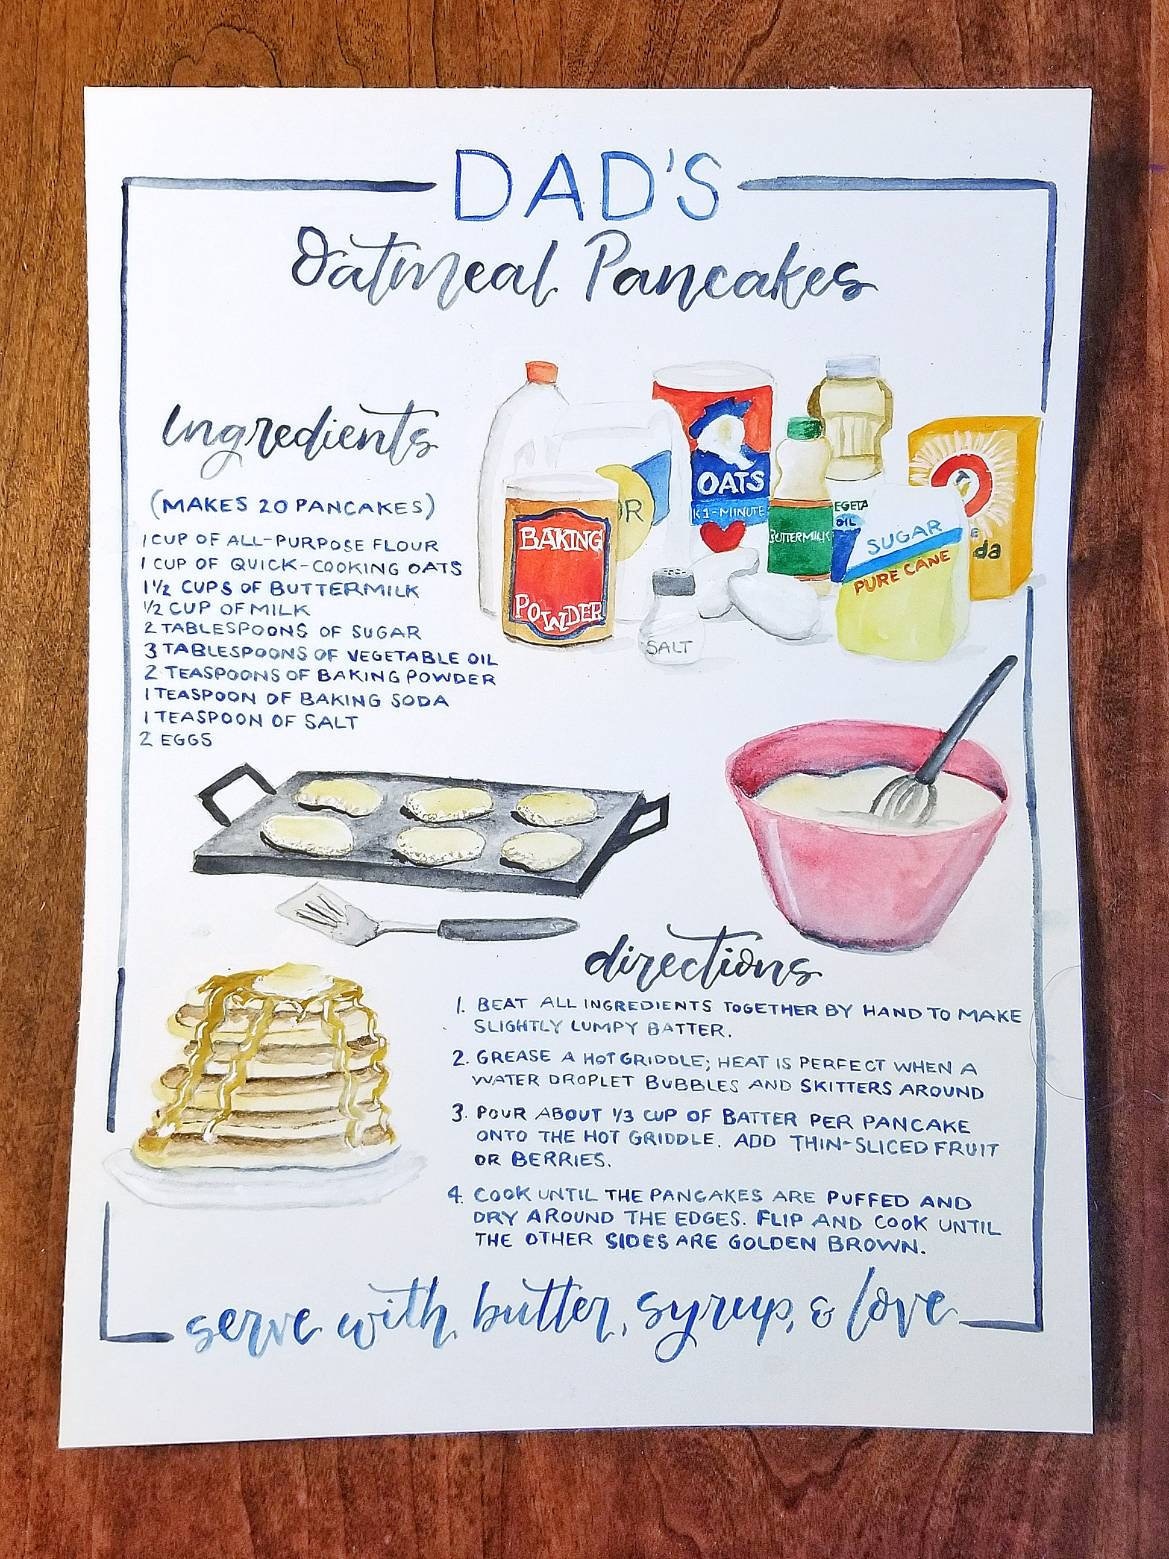 DAD'S
Oatmeal Pancakes
Ingredients
(MAKES 20 PANCAKES)
1 CUP OF ALL-PURPOSE FLOUR
1 CUP OF QUICK-COOKING OATS
1 1/2 CUPS OF BUTTERMILK
1/2 CUP OF MILK
2 TABLESPOONS OF SUGAR
3 TABLESPOONS OF VEGETABLE OIL
2 TEASPOONS OF BAKING POWDER
1 TEASPOON OF BAKING SODA
1 TEASPOON OF SALT
2 EGGS
BAKING
POWDER
OR
OATS
1-MINUTE
BUTTERMILK
VEGETA
OIL
SALT
SUGAR
PURE CANE
da
directions
1. BEAT ALL INGREDIENTS TOGETHER BY HAND TO MAKE
SLIGHTLY LUMPY BATTER.
2. GREASE A HOT GRIDDLE; HEAT IS PERFECT WHEN A
WATER DROPLET BUBBLES AND SKITTERS AROUND
3. POUR ABOUT 1/3 CUP OF BATTER PER PANCAKE
ONTO THE HOT GRIDDLE. ADD THIN-SLICED FRUIT
OR BERRIES.
4. COOK UNTIL THE PANCAKES ARE PUFFED AND
DRY AROUND THE EDGES. FLIP AND COOK UNTIL
THE OTHER SIDES ARE GOLDEN BROWN.
serve with butter, syrup, & love